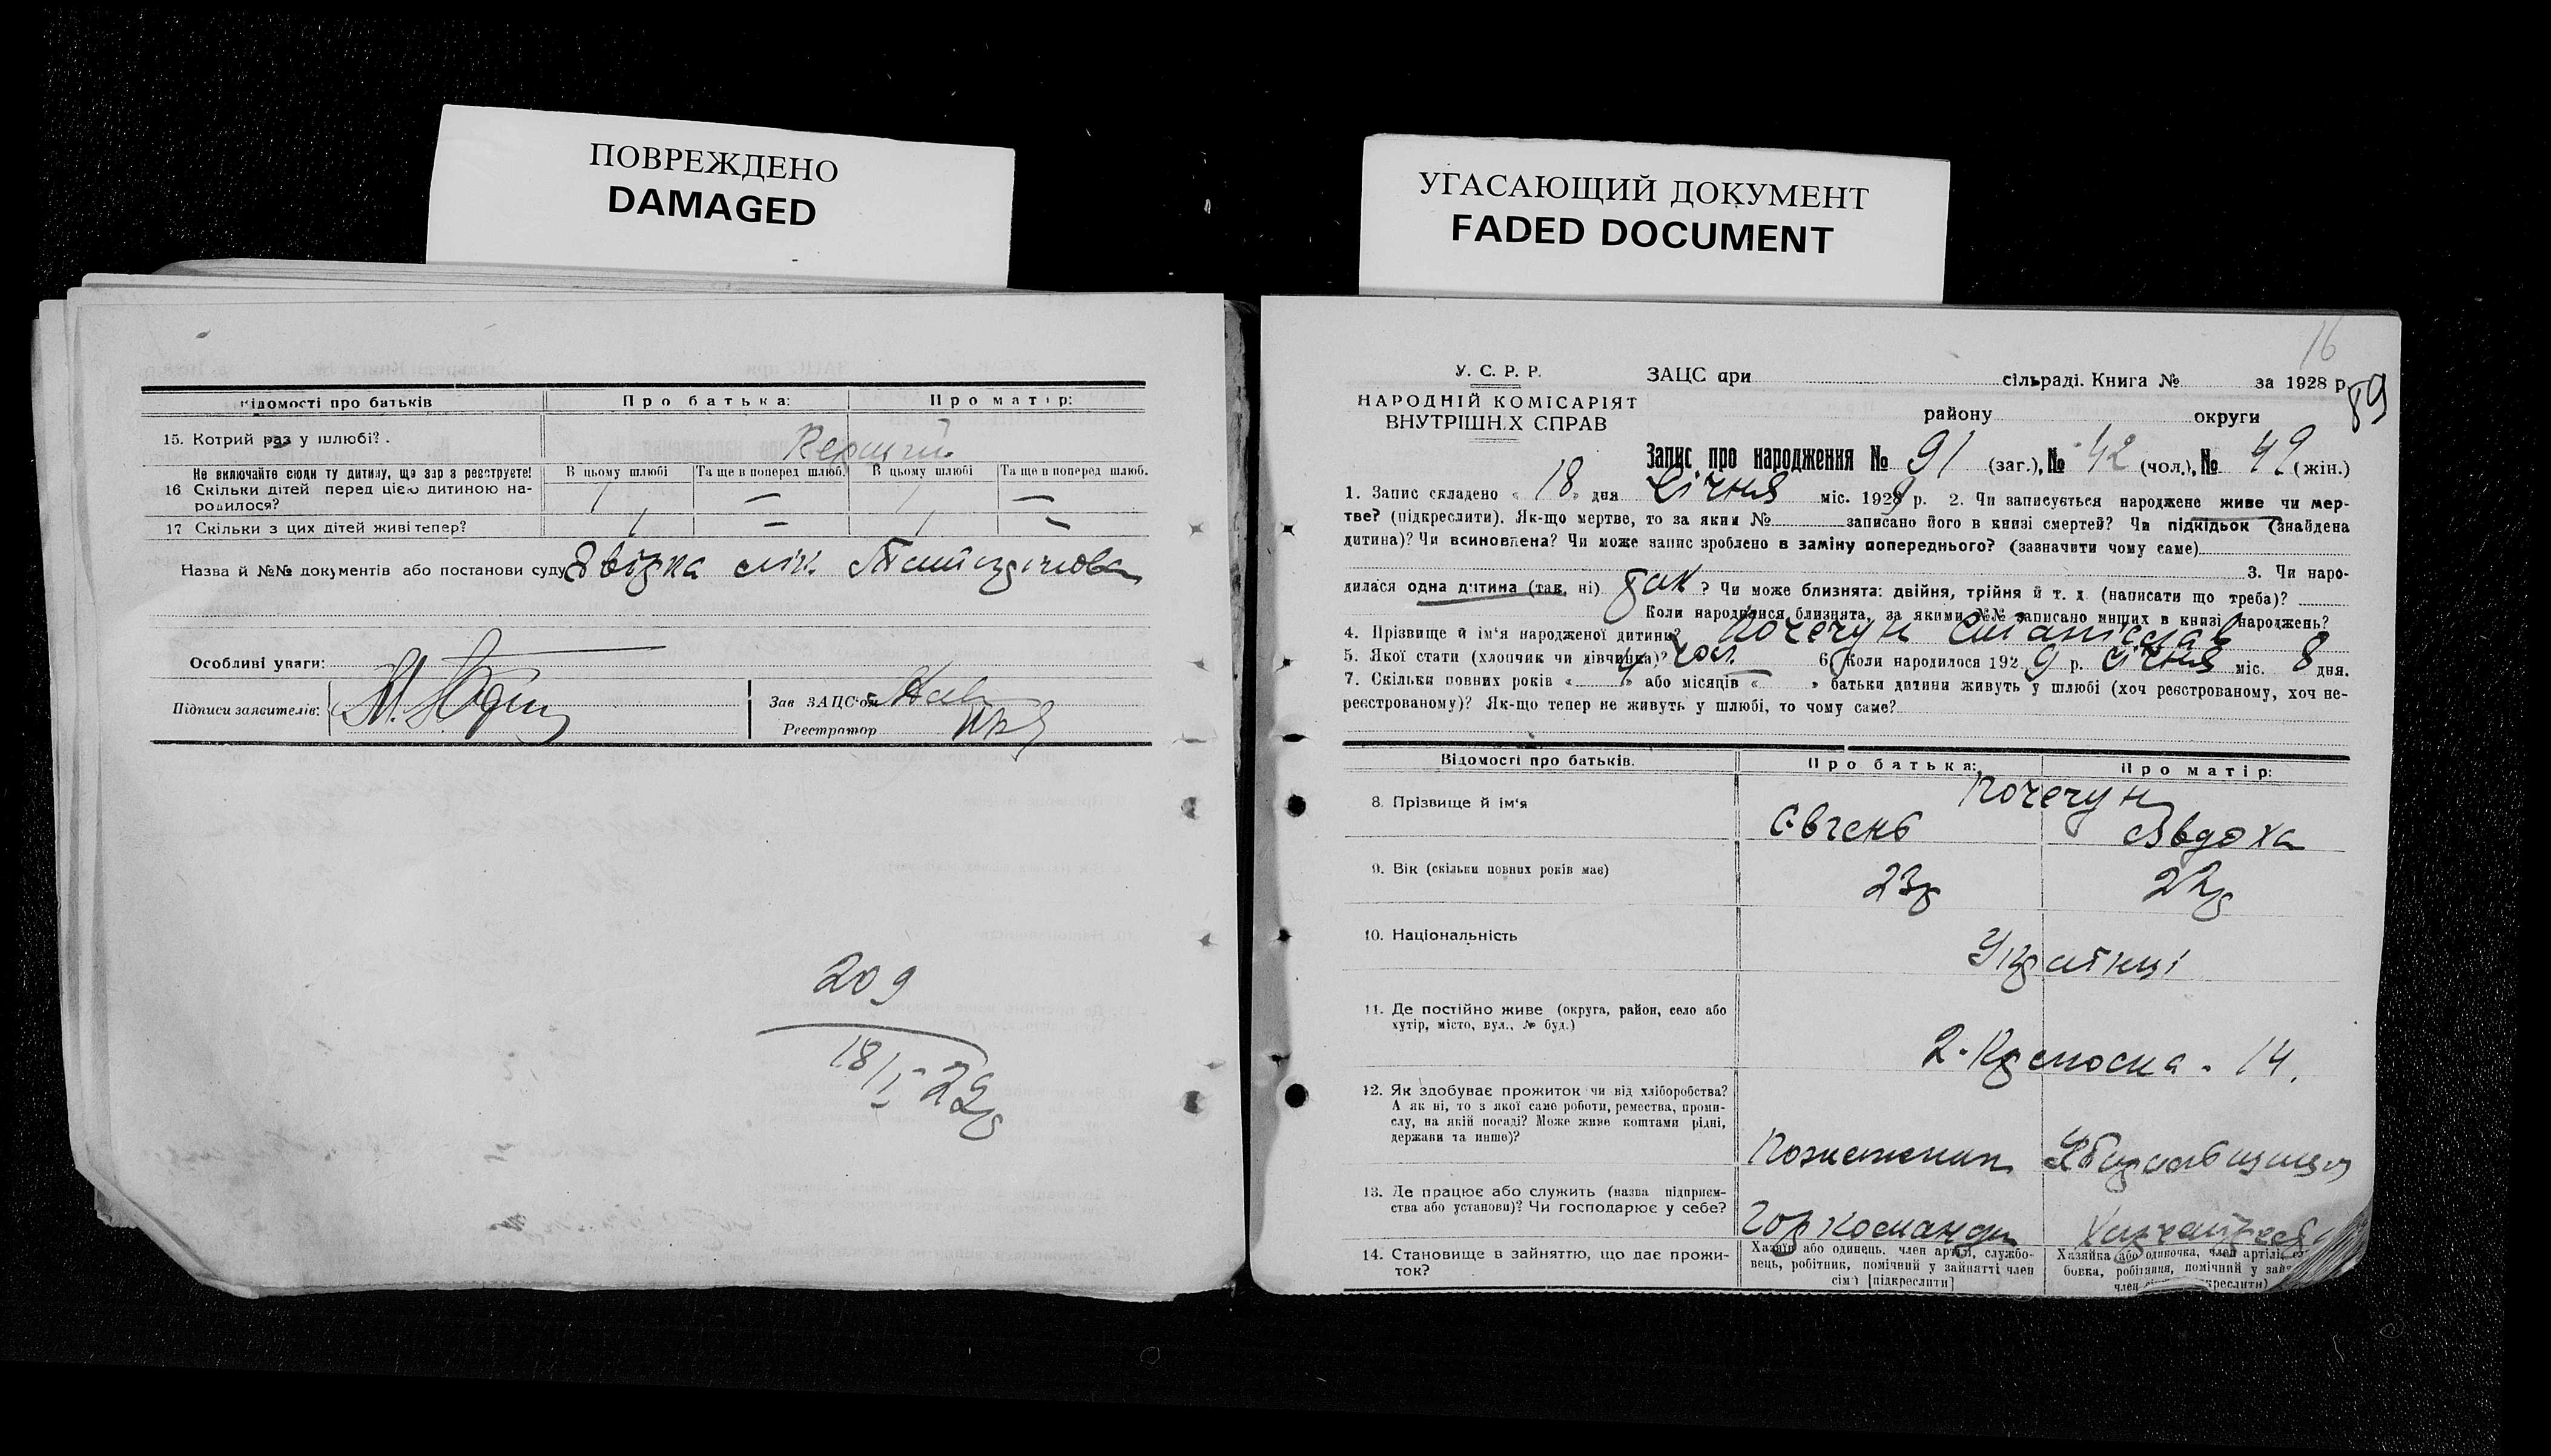 ПОВРЕЖДЕНО
DAMAGED
УГАСАЮЩИЙ ДОКУМЕНТ
FADED DOCUMENT
Відомості про батьків
Про батька:
Про матір:
15. Котрий раз у шлюбі?
Не включайте сюди ту дитину, що зараз реєструєте!
В цьому шлюбі
Та ще в поперед шлюб.
В цьому шлюбі
Та ще в поперед шлюб.
16 Скільки дітей перед цією дитиною на-
родилося?
1 — 1 —
17 Скільки з цих дітей живі тепер?
1 — 1 —
Назва й №№ документів або постанови суду
Особливі уваги:
Підписи заявителів:
Зав ЗАЦС'ом
Реєстратор
209
18/I-29р
16
89
У. С. Р. Р.
НАРОДНІЙ КОМІСАРІЯТ
ВНУТРІШНІХ СПРАВ
ЗАЦС при сільраді. Книга № за 1928 р.
району округи
Запис про народження № 91 (заг.), № 42 (чол.), № 49 (жін.)
1. Запис складено « 18 » дня Січня міс. 1929 р. 2. Чи записується народжене живе чи мер-
тве? (підкреслити). Як-що мертве, то за яким № записано його в книзі смертей? Чи підкідьок (знайдена
дитина)? Чи всиновлена? Чи може запис зроблено в заміну попереднього? (зазначити чому саме)
3. Чи наро-
дилася одна дитина (так, ні) так ? Чи може близнята: двійня, трійня й т. д. (написати що треба)?
Коли народилися близнята, за якими №№ записано инших в книзі народжень?
4. Прізвище й ім'я народженої дитини? Кочегун Станіслав
5. Якої стати (хлопчик чи дівчинка)? чол. 6. Коли народилося 192 9 р. січня міс. 8 дня.
7. Скільки повних років « 4 » або місяців « — » батьки дитини живуть у шлюбі (хоч реєстрованому, хоч не-
реєстрованому)? Як-що тепер не живуть у шлюбі, то чому саме?
Відомості про батьків.
Про батька:
Про матір:
8. Прізвище й ім'я
Кочегун
Євгень
Явдоха
9. Вік (скільки повних років має)
23р
22р
10. Національність
Українці
11. Де постійно живе (округа, район, село або
хутір, місто, вул., № буд.)
14.
12. Як здобуває прожиток чи від хліборобства?
А як ні, то з якої саме роботи, ремества, проми-
слу, на якій посаді? Може живе коштами рідні,
держави та инше)?
13. Де працює або служить (назва підприєм-
ства або установи)? Чи господарює у себе?
Гор команди
14. Становище в зайняттю, що дає прожи-
ток?
Хазяїн або одинець, член артілі, службо-
вець, робітник, помічний у зайнятті член
сім'ї [підкреслити]
Хазяйка або одиночка, член артілі,
бовка, робітниця, помічний у зай
член